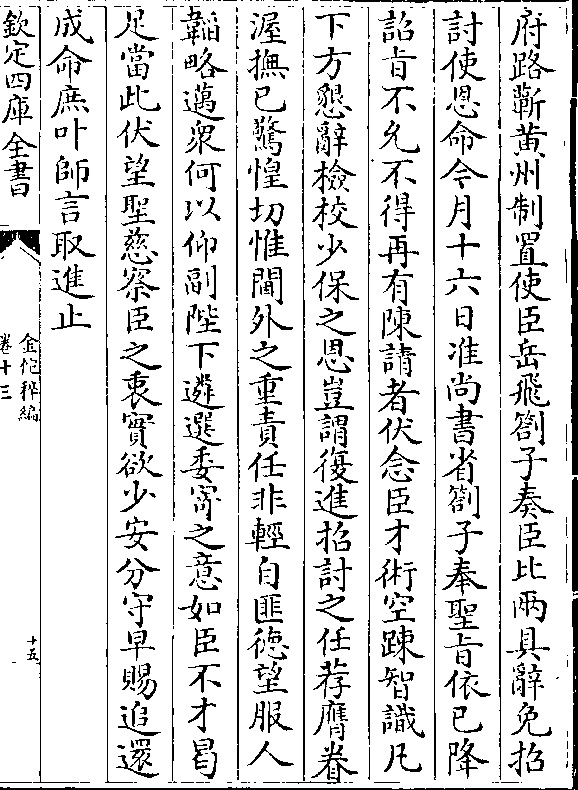 府路蘄黄州制置使臣岳飛劄子奏臣比兩具辭免招
討使恩命今月十六日准尚書省劄子奉聖旨依已降
詔旨不允不得再有陳請者伏念臣才術空踈智識凡
下方懇辭檢校少保之恩豈謂復進招討之任荐膺眷
渥撫已驚惶切惟閫外之重責任非輕自匪徳望服人
韜略邁衆何以仰副陛下遴選委寄之意如臣不才曷
足當此伏望聖慈察臣之衷實欲少安分守早賜追還
成命庶叶師言取進止
欽定四庫全書
金佗稡編
卷十三
十五